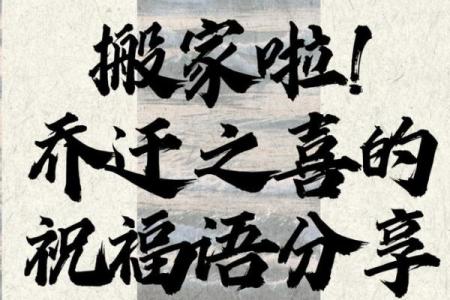 搬家啦！
乔迁之喜的
祝福语分享